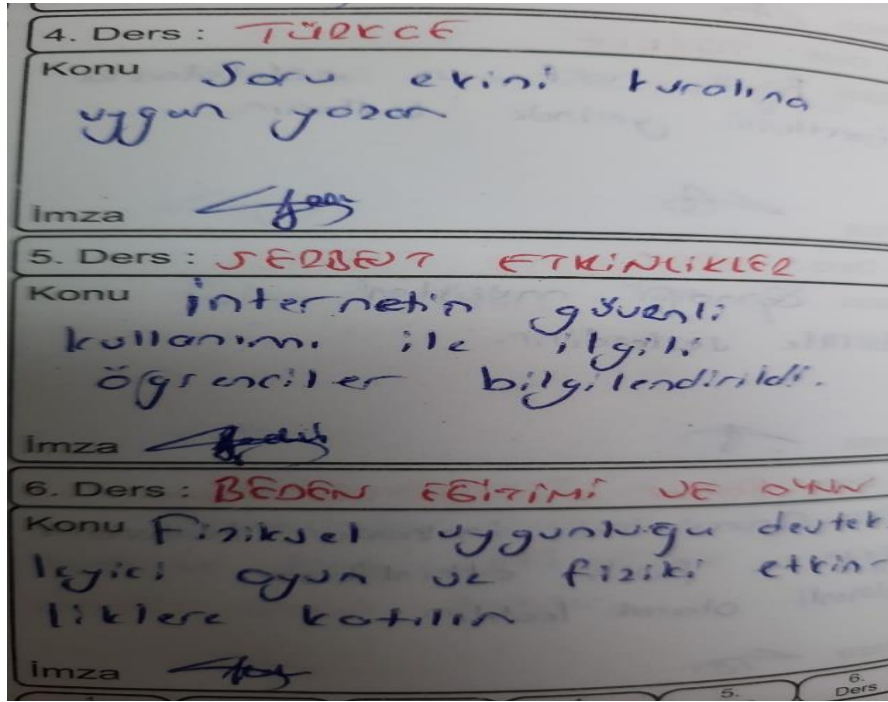 4. Ders : TÜRKCE
Konu Soru ekini kuralına
uygun yazar
İmza
5. Ders : SERBEST ETKİNLİKLER
Konu internetin güvenli
kullanımı ile ilgili
öğrenciler bilgilendirildi.
İmza
6. Ders : BEDEN EĞİTİMİ VE OYUN
Konu Fiziksel uygunluğu destek
leyici oyun ve fiziki etkin-
liklere katılır
İmza
5.
6.
Ders